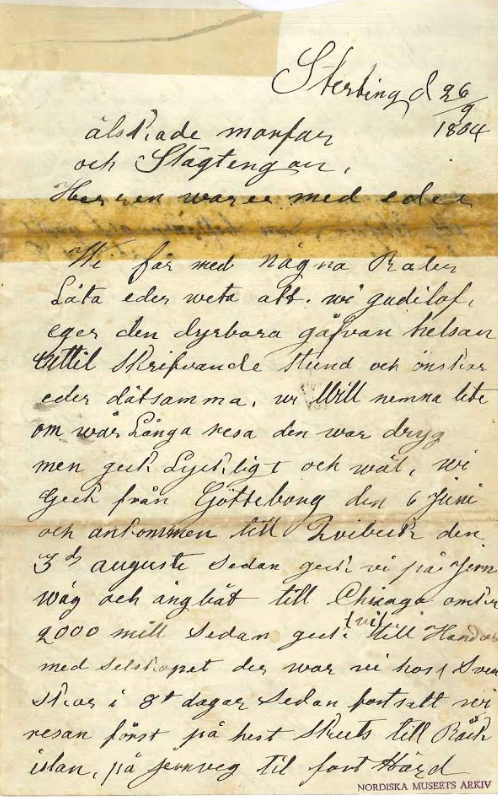 Sterling d 26/9 1864
älskade morfar
och Slägtengar,
Herren waree med eder
Wi får med några Rader
Låta eder weta att. wi gudilof,
eger den dyrbara gåfvan helsan
intill skrifvande stund och önskar
eder dätsamma, wi Will nemna lite
om wår Långa resa den war dryg
men geck Lyckligt och wäl, wi
Geck från Götteborg den 6 Juni
och ankommen till Qvibeck den
3d auguste sedan geck vi på Jern
wäg och ångbåt till Chicago omkr
2000 mill sedan geck till
med selskapet der war vi hoss Sven
skar i 8t dagar sedan fortsatt wi
resan först på hest skuts till Råck
islan, på jernveg til fort Härd
NORDISKA MUSEETS ARKIV